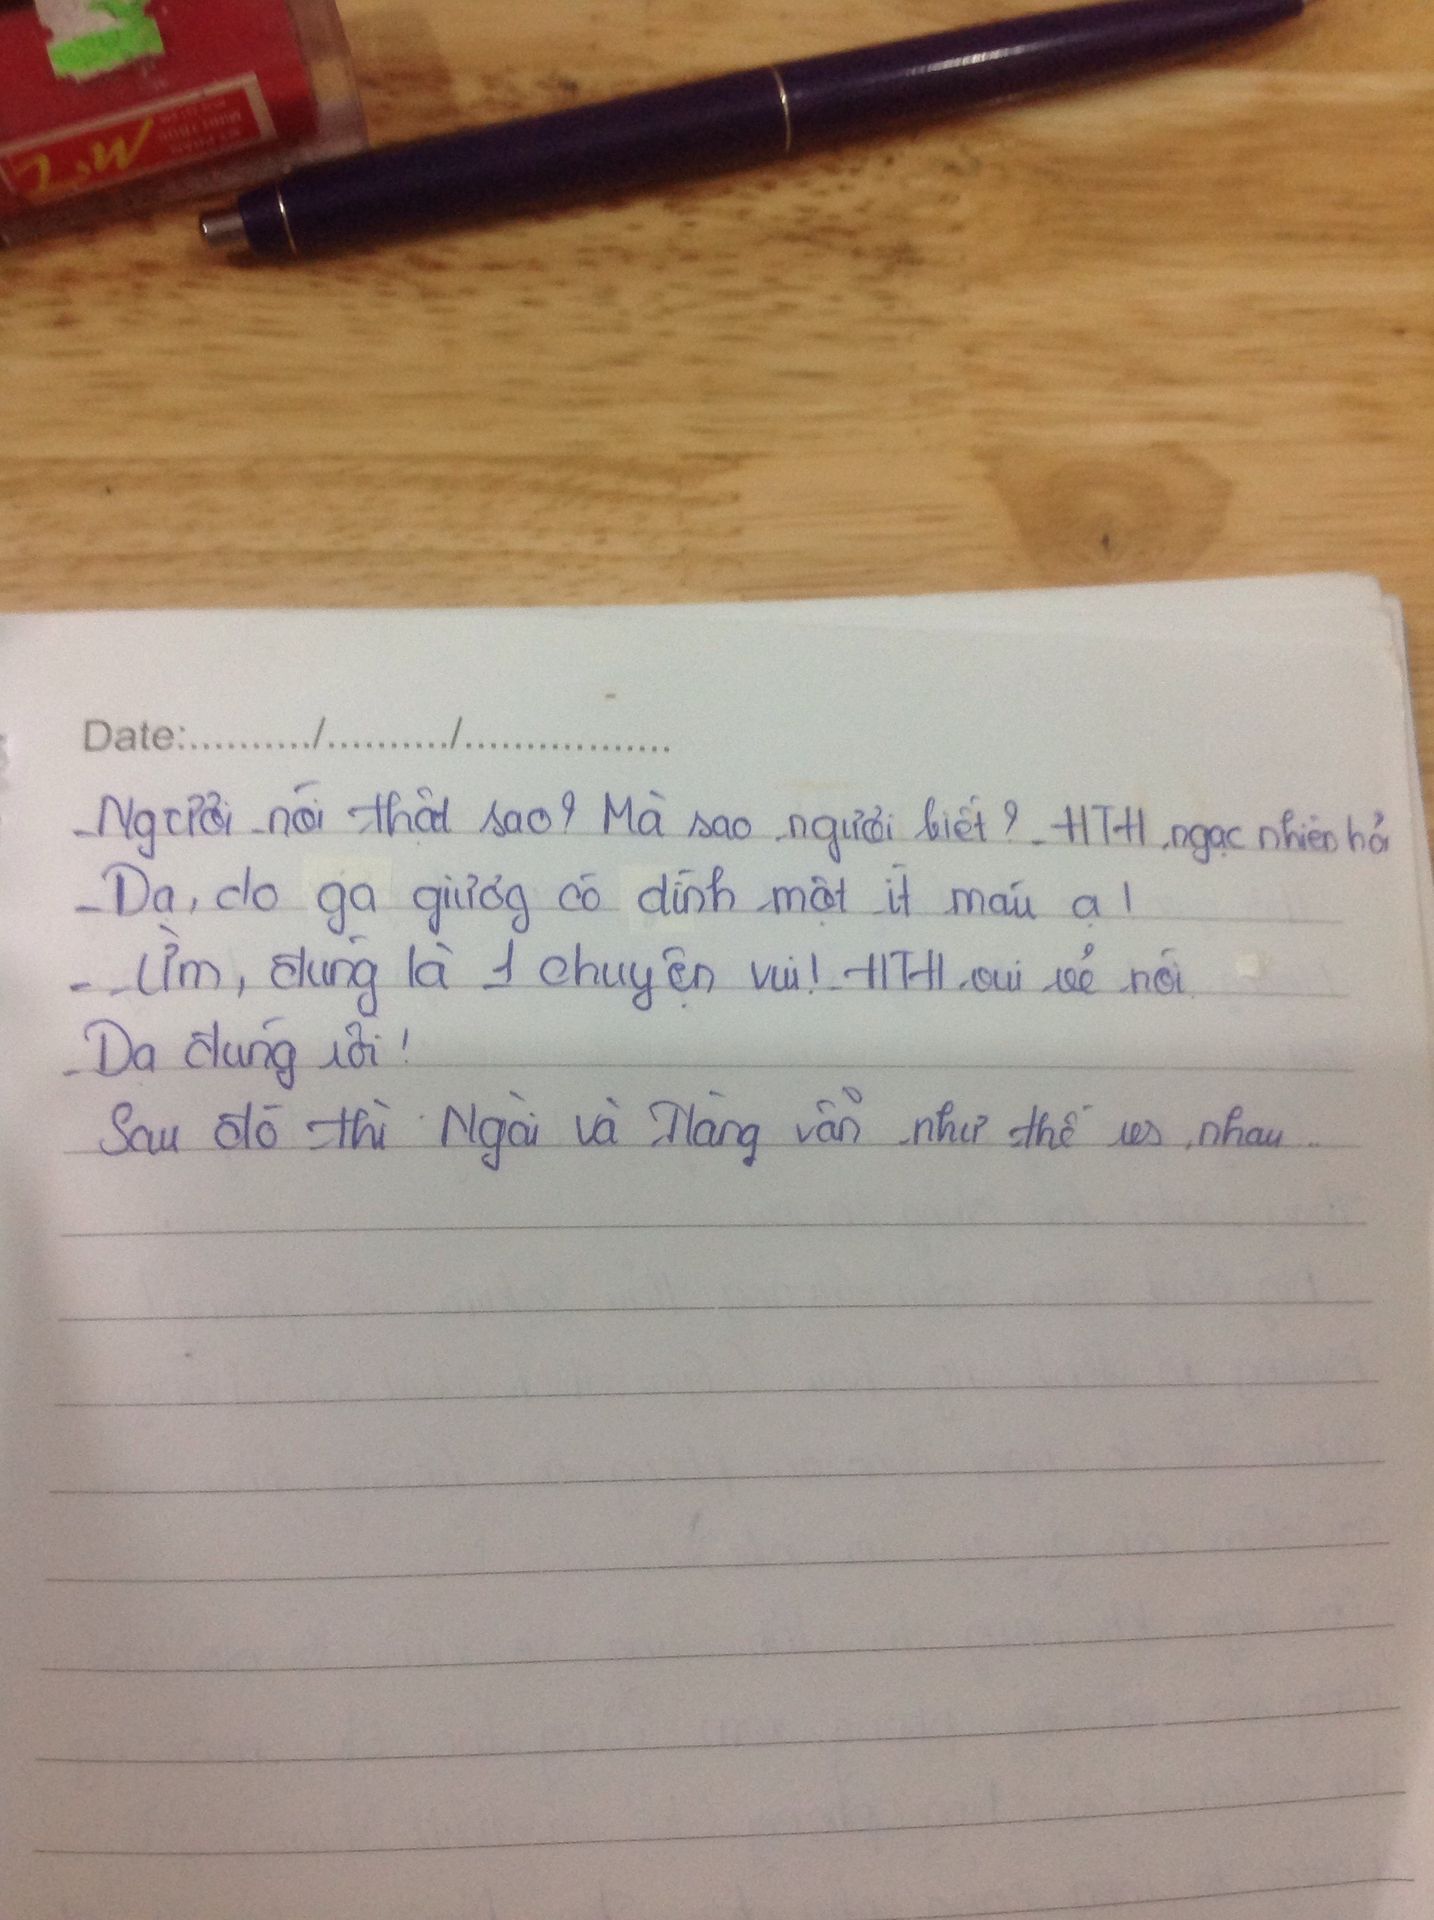 MỸ PHẨM
MINH THƯ
Date:........../........../.................
- Người nói thật sao? Mà sao người biết? - HTH ngạc nhiên hỏi
- Dạ, do ga giường có dính một ít máu ạ!
- Ừm, đúng là 1 chuyện vui! - HTH vui vẻ nói
- Dạ đúng rồi!
Sau đó thì Ngài và Nàng vẫn như thế vs nhau